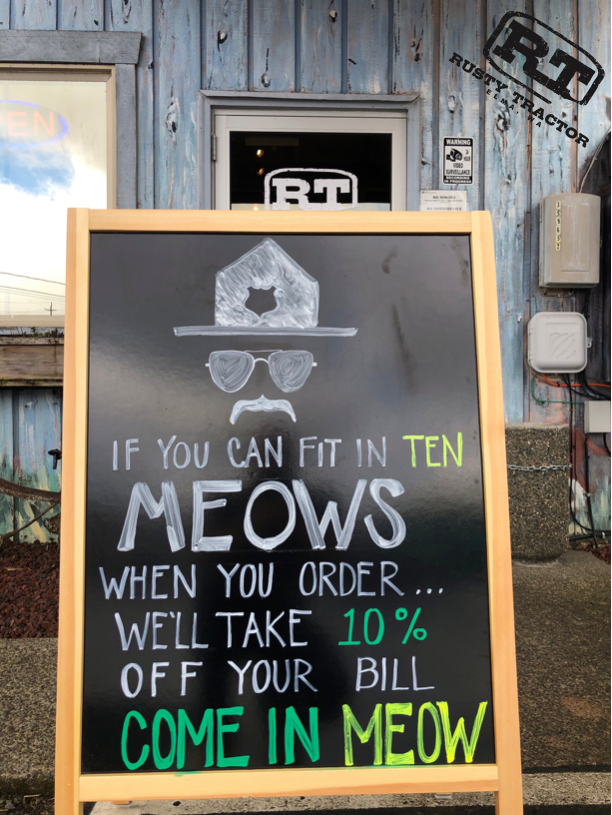 RT
RUSTY TRACTOR
EN
WARNING
RT
IF YOU CAN FIT IN TEN
MEOWS
WHEN YOU ORDER...
WE'LL TAKE 10%
OFF YOUR BILL
COME IN MEOW